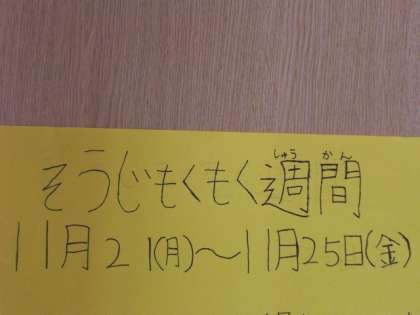 そうじもくもく週間
しゅうかん
11月21(月)～11月25日(金)